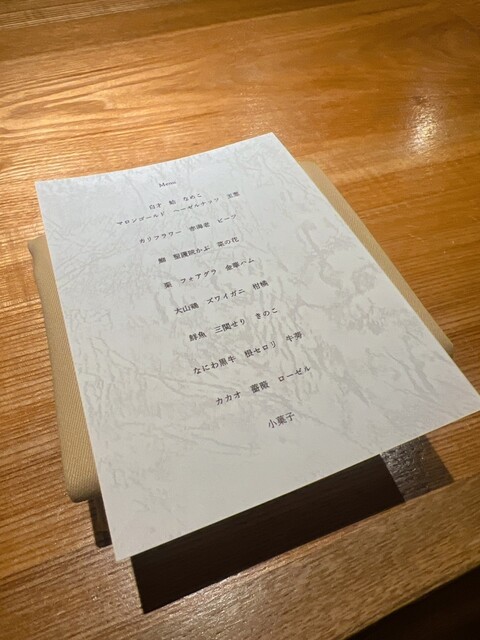 Menu
白子 鮎 なめこ
マロンゴールド ヘーゼルナッツ 玉葱
カリフラワー 赤海老 ビーツ
鰤 聖護院かぶ 菜の花
栗 フォアグラ 金華ハム
大山鶏 ズワイガニ 柑橘
鮮魚 三関せり きのこ
なにわ黒牛 根セロリ 牛蒡
カカオ 薔薇 ローゼル
小菓子